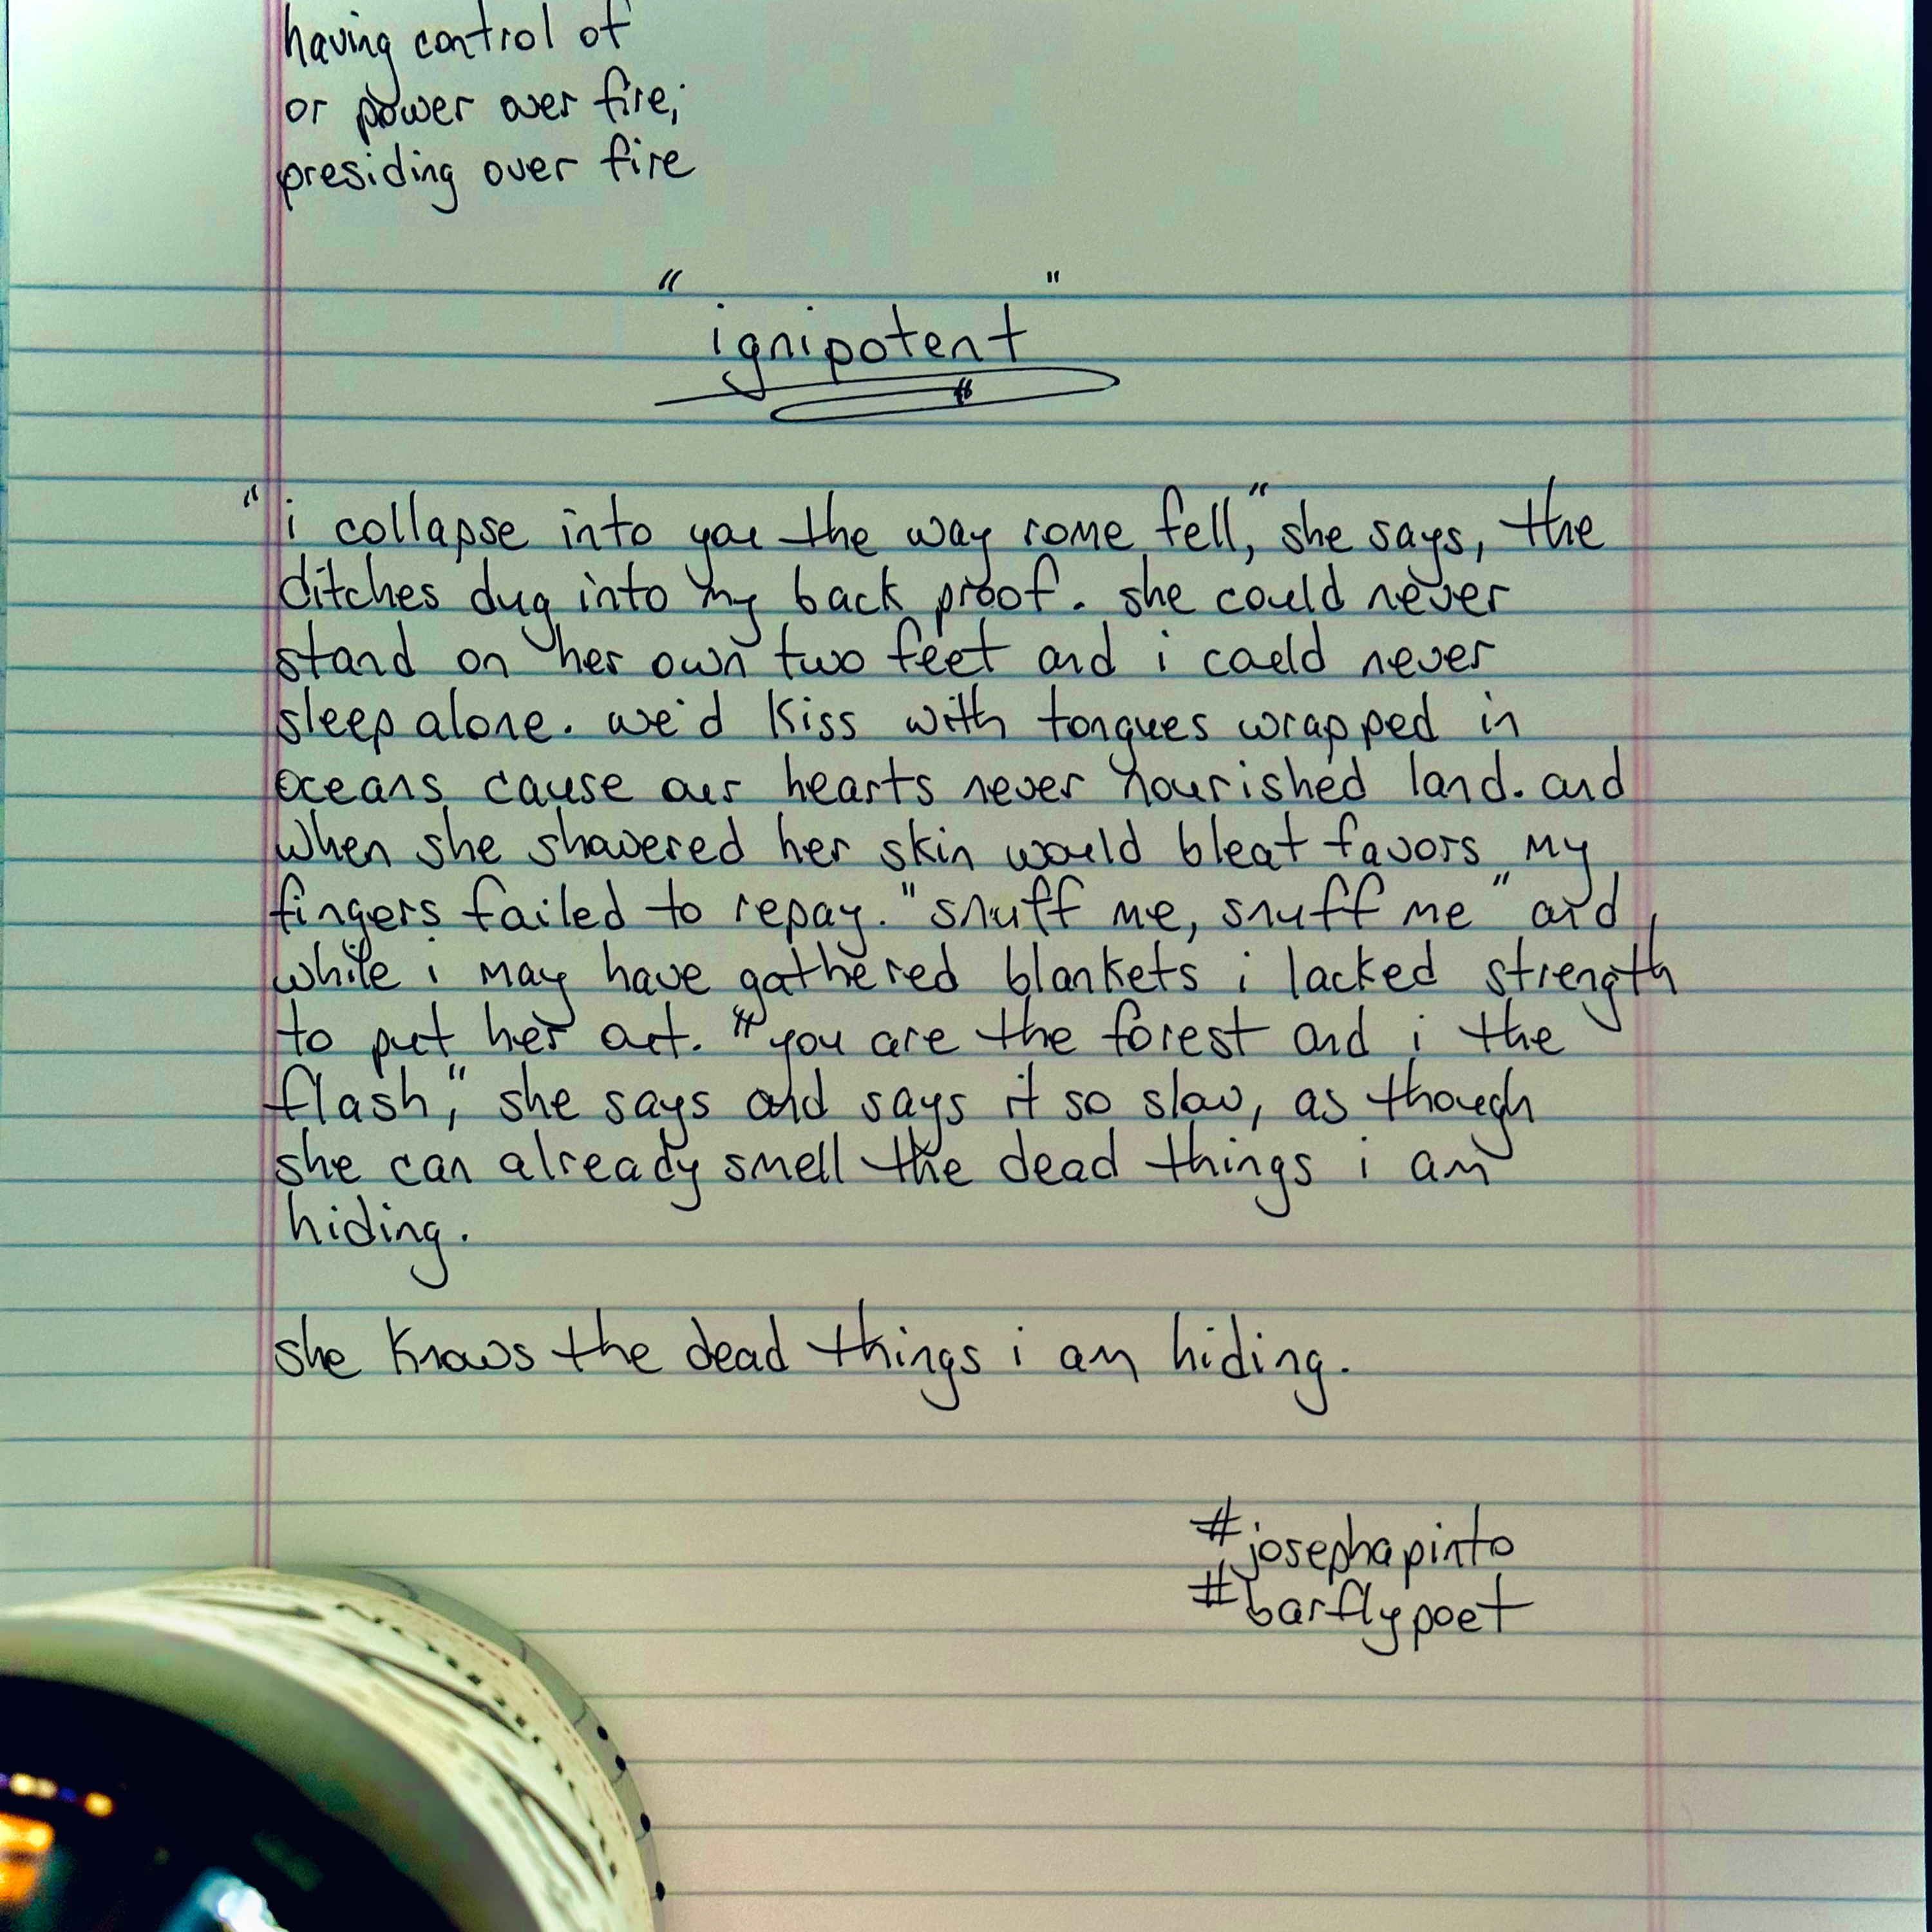 having control of
or power over fire;
presiding over fire
"ignipotent"
"i collapse into you the way rome fell," she says, the
ditches dug into my back proof. she could never
stand on her own two feet and i could never
sleep alone. we'd kiss with tongues wrapped in
oceans cause our hearts never nourished land. and
when she showered her skin would bleat favors my
fingers failed to repay. "snuff me, snuff me" and,
while i may have gathered blankets i lacked strength
to put her out. "you are the forest and i the
flash," she says and says it so slow, as though
she can already smell the dead things i am
hiding.
she knows the dead things i am hiding.
#josephapinto
#barflypoet